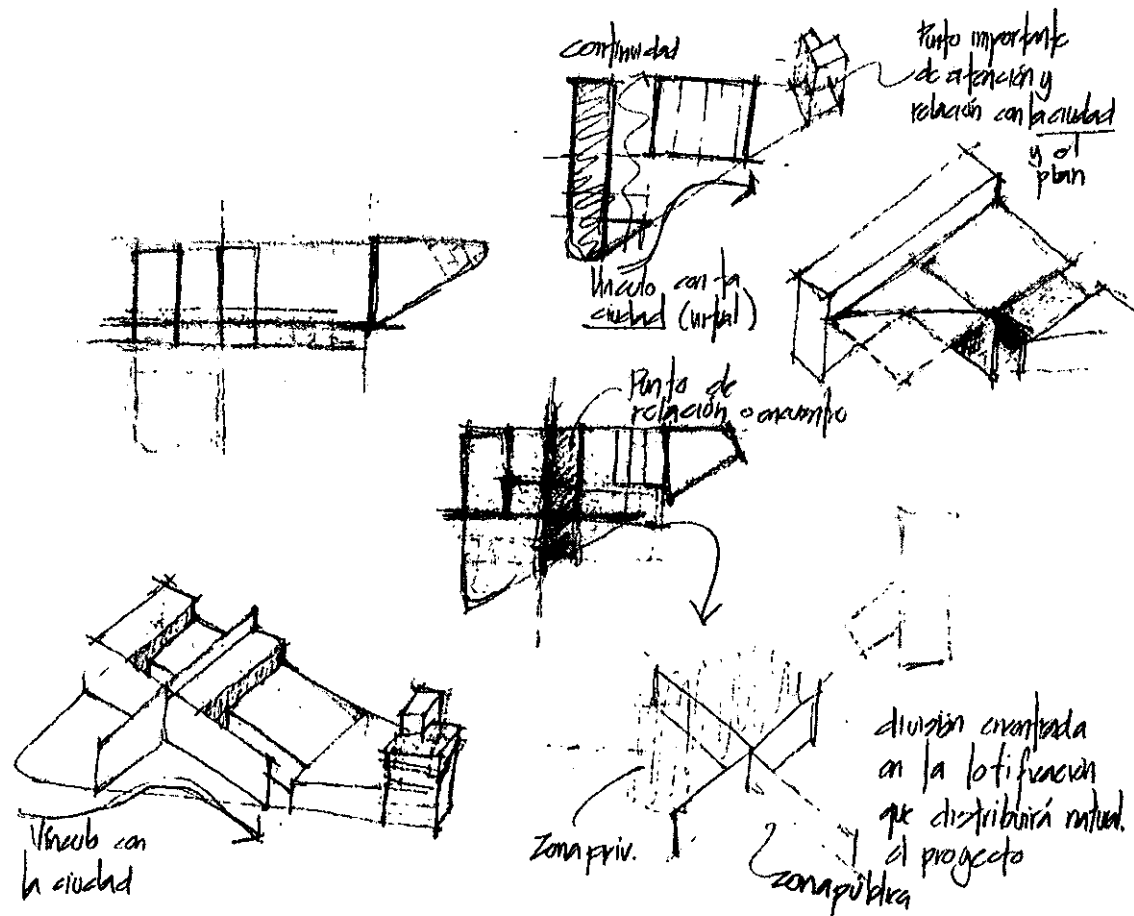 continuidad
Punto importante
de atención y
relación con la ciudad
y el
plan
Vínculo con la
ciudad
Punto de
relación o encuentro
Vínculo con
la ciudad
Zona priv.
zona pública
división encontrada
en la lotificación
que distribuirá natural.
el proyecto